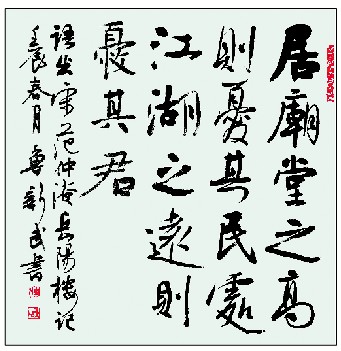 居廟堂之高
則憂其民處
江湖之遠則
憂其君
語出宋范仲淹岳陽樓記
壬辰春月魯新民書